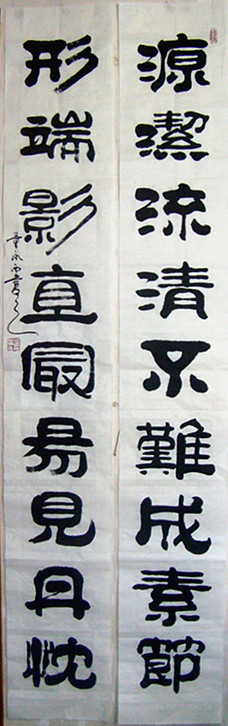 源潔流清不難成素節
形端影直最易見丹忱